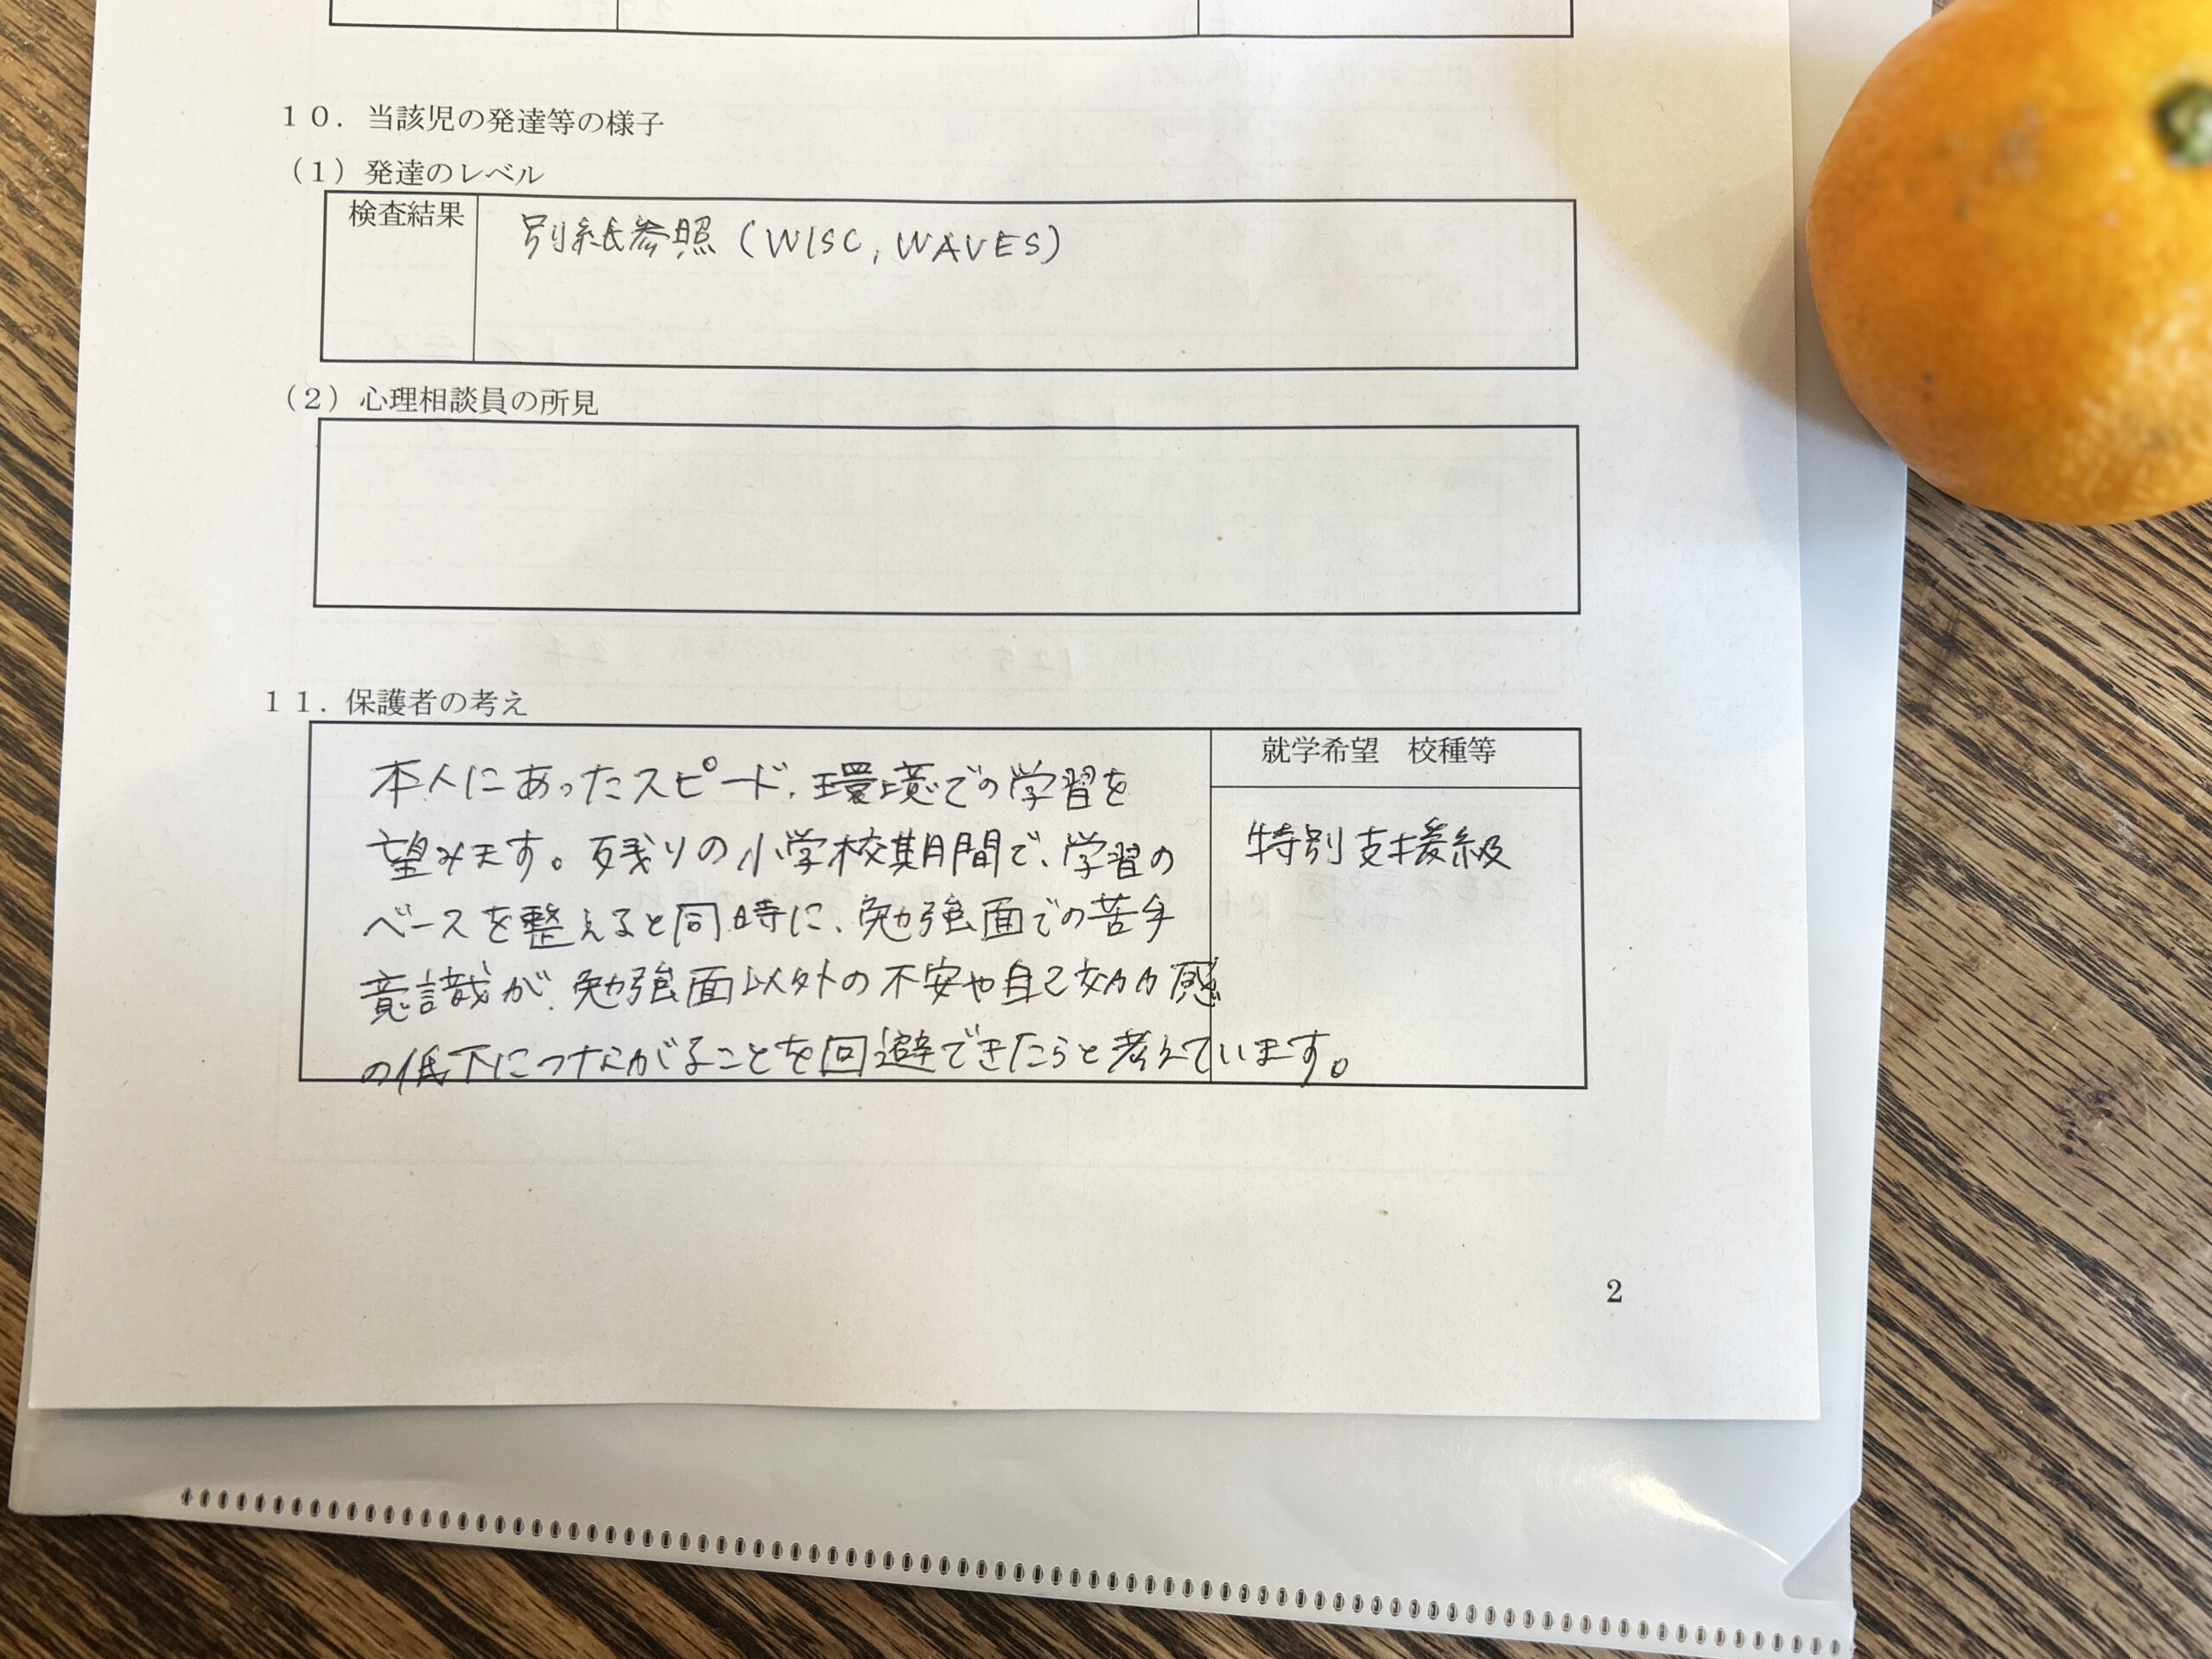 １０．当該児の発達等の様子
（１）発達のレベル
検査結果
別紙参照（WISC, WAVES）
（２）心理相談員の所見
１１．保護者の考え
就学希望　校種等
本人にあったスピード、環境での学習を
望みます。残りの小学校期間で、学習の
ベースを整えると同時に、勉強面での苦手
意識が、勉強面以外の不安や自己効力感
の低下につながることを回避できたらと考えています。
特別支援級
2